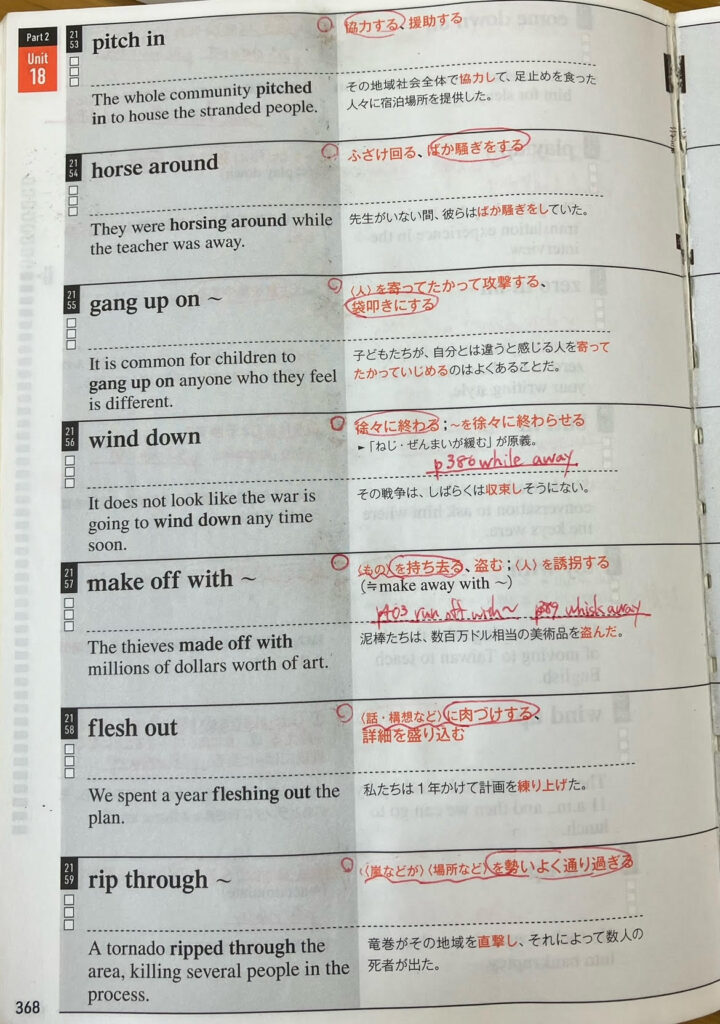 Part 2
Unit
18
21
53
pitch in
協力する、援助する
The whole community pitched
in to house the stranded people.
その地域社会全体で協力して、足止めを食った
人々に宿泊場所を提供した。
21
54
horse around
ふざけ回る、ばか騒ぎをする
They were horsing around while
the teacher was away.
先生がいない間、彼らはばか騒ぎをしていた。
21
55
gang up on ~
〈人〉を寄ってたかって攻撃する、
袋叩きにする
It is common for children to
gang up on anyone who they feel
is different.
子どもたちが、自分とは違うと感じる人を寄って
たかっていじめるのはよくあることだ。
21
56
wind down
徐々に終わる；～を徐々に終わらせる
►「ねじ・ぜんまいが緩む」が原義。
p386 while away
It does not look like the war is
going to wind down any time
soon.
その戦争は、しばらくは収束しそうにない。
21
57
make off with ~
〈もの〉を持ち去る、盗む；〈人〉を誘拐する
(≒make away with ~)
p403 run off with~ p389 whisk away
The thieves made off with
millions of dollars worth of art.
泥棒たちは、数百万ドル相当の美術品を盗んだ。
21
58
flesh out
〈話・構想など〉に肉づけする、
詳細を盛り込む
We spent a year fleshing out the
plan.
私たちは1年かけて計画を練り上げた。
21
59
rip through ~
〈嵐などが〉〈場所など〉を勢いよく通り過ぎる
A tornado ripped through the
area, killing several people in the
process.
竜巻がその地域を直撃し、それによって数人の
死者が出た。
368